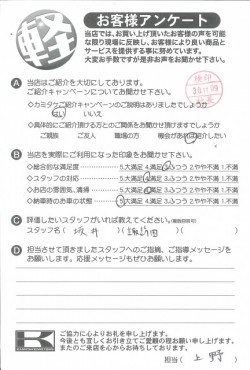 軽 お客様アンケート
当店では、お買い上げ頂いたお客様の声を可能
な限り現場に反映し、お客様により良い商品と
サービスを提供する事に努めています。
大変お手数ですが是非お声をお聞かせ下さい。
A 当店はご紹介を大切にしております。
ご紹介キャンペーンについてお聞かせ下さい。
・カミタケご紹介キャンペーンのご説明はありましたでしょうか
はい いいえ
・具体的にご紹介頂ける方とのご関係をお聞かせ頂けますでしょうか
ご親族 ご友人 職場の方 機会があれば紹介したい
B 当店を実際にご利用になった印象をお聞かせ下さい。
◇総合的な満足度 5.大満足 4.満足 3.ふつう 2.やや不満 1.不満
◇スタッフの対応 5.大満足 4.満足 3.ふつう 2.やや不満 1.不満
◇お店の雰囲気、清掃 5.大満足 4.満足 3.ふつう 2.やや不満 1.不満
◇納車時のお車の状態 5.大満足 4.満足 3.ふつう 2.やや不満 1.不満
C 評価したいスタッフがいれば教えてください。
スタッフ名( 坂井 )( 諏訪園 )
D 担当させて頂きましたスタッフへのご指摘、ご指導メッセージを
お願いします。応援メッセージもぜひお願いします。
K
ご協力に心よりお礼を申し上げます。
今後とも宜しくお引き立てご愛顧の程お願い申し上げます。
またのご来店を心からお待ちしております。
担当( 上野 )